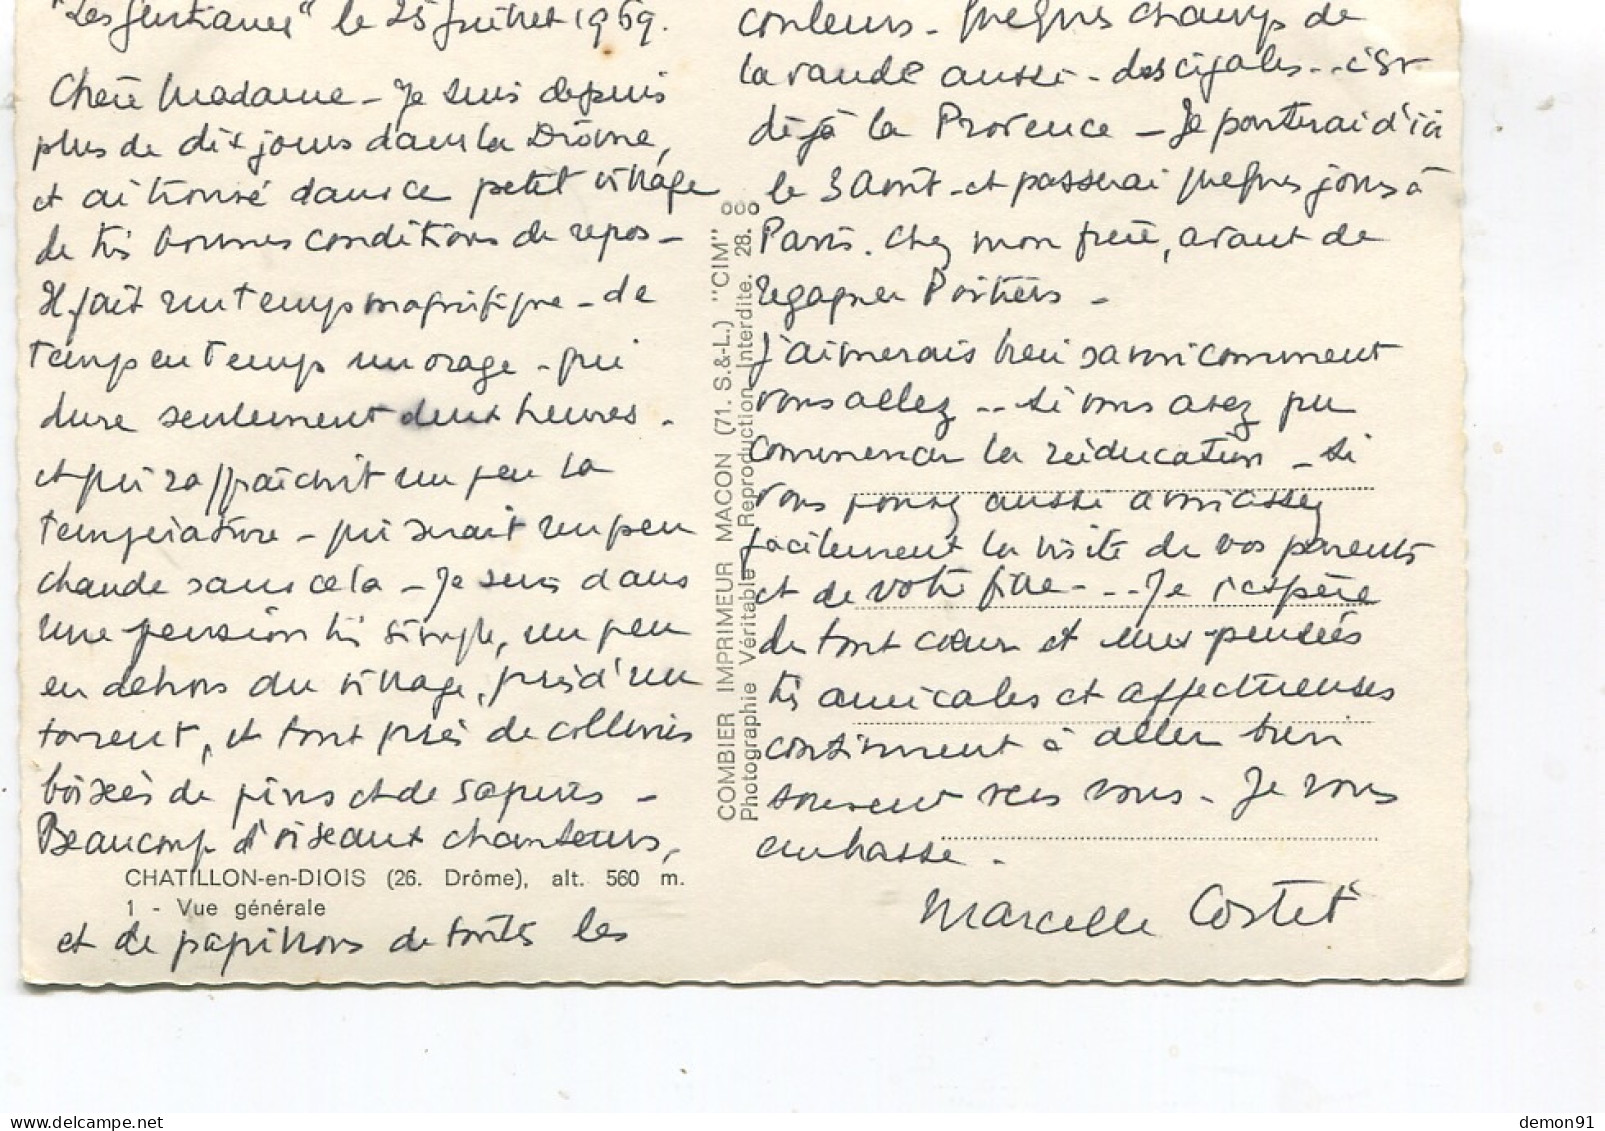 "Les Gentianes" le 25 Juillet 1969.
Chère Madame - Je suis depuis
plus de dix jours dans la Drôme,
et ai trouvé dans ce petit village
de très bonnes conditions de repos -
Il fait un temps magnifique - de
temps en temps un orage - qui
dure seulement deux heures.
et qui raffraîchit un peu la
température - qui serait un peu
chaude sans cela - Je suis dans
une pension très simple, un peu
en dehors du village, près d'un
torrent, et tout près de collines
boisées de pins et de sapins -
Beaucoup d'oiseaux chanteurs,
CHATILLON-en-DIOIS (26. Drôme), alt. 560 m.
1 - Vue générale
et de papillons de toutes les
COMBIER IMPRIMEUR MACON (71. S.&-L.) "CIM"
Photographie Véritable Reproduction Interdite. 28.
couleurs - Quelques champs de
lavande aussi - des cigales... c'est
déjà la Provence - Je partirai d'ici
le 3 Août - et passerai quelques jours à
Paris. chez mon frère, avant de
regagner Poitiers -
J'aimerais bien savoir comment
vous allez .. si vous avez pu
commencer la rééducation - si
vous pouvez aussi avoir assez
facilement la visite de vos parents
et de votre fille - ... Je l'espère
de tout cœur et mes pensées
très amicales et affectueuses
continuent à aller bien
souvent vers vous. Je vous
embrasse.
Marcelle Costet
demon91